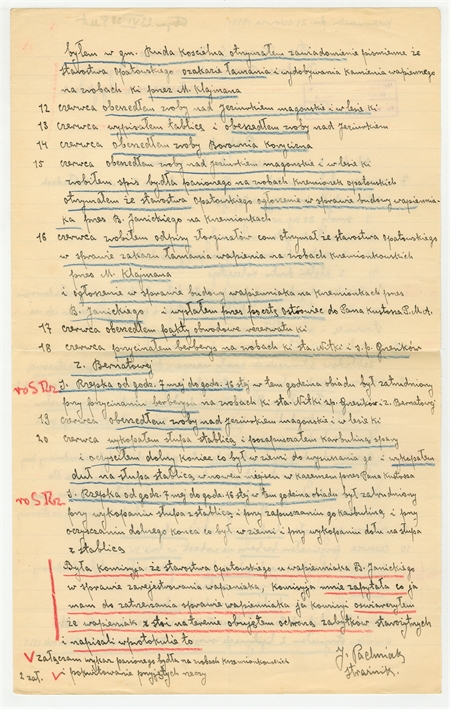 byłem w gm. Ruda Kościelna otrzymałem zawiadomienie piśmienne że
starostwa Opatowskiego ozakazie łamania i wydobywania kamienia wapiennego
na zrobach ki przez M. Klajmana
12 czerwca obeszedłem zroby nad Jeziorkiem magonskie i w lesie ki
13 czerwca wypisałem tablicę i obeszedłem zroby nad Jeziorkiem
14 czerwca obeszedłem zroby Borownia Koryciena
15 czerwca obeszedłem zroby nad Jeziorkiem magonskie i w lesie ki
zrobiłem spis bydła pasionego na zrobach Kremionek opatowskich
otrzymałem że starostwa Opatowskiego ogłoszenie w sprawie budowy wapiennia-
ka przes B. Janickiego na Kremionkach
16 czerwca zrobiłem odpisy zorginałów com otrzymał że starostwa Opatowskiego
w sprawie zakazu łamania wapienia na zrobach Kremionkowskich
przes M. Klajmana
i ogłoszenie w sprawie budowy wapienniaka na Kremionkach przes
B. Janickiego i wysłałem pres pocztę Ostówiec do Pana Kustosza P.M.A.
17 czerwca obeszedłem pakty obwodowe rezerwatu ki
18 czerwca przycinałem berberys na zrobach ki sta. Nitki i s.p. Gresików
z. Bernatowej
J. Rzepka od godz. 7 mej do godz. 16 stej w tem godzina obiadu był zatrudniony
przy przycinaniu berberysu na zrobach ki sta. Nitki s.p. Gresików z. Bernatowej
19 czerwca obeszedłem zroby nad Jeziorkiem magonskie i w lesie ki
20 czerwca wykopałem słupa stablicą i pozapuszczałem karbuliną spary
i oczyściłem dolny koniec co był w ziemi do wymiania go i wykopałem
duł na słupa stablicą w nowem miejscu w karennem przes Pana Kustosza
J. Rzepka od godz. 7 mej do godz. 16 stej w tem godzina obiady był zatrudniony
przy wykopaniu słupa z stablicą i przy zapuszczaniu go karbuliną i przy
oczyszczaniu dolnego konca co był w ziemi i przy wykopaniu dołu na słupa
z stablicą
Była komisyja że starostwa Opatowskiego u wapienniaka B. Janickiego
w sprawie zarejestrowania wapieniaka, Komisyja mnie zapytała co ja
mam do zatrzerzania sprawie wapienniaka ja komisyi oswiarczyłem
że wapieniak z stoi na terenie objętem ochroną zabytków starożytnych
i napisali wprotokulie to
załączam wykaz pasionego bydła na zrobach Kremionkowskich
2 zał. i pokwitowanie przyjętych rzeczy
J. Pachniak
Strażnik.